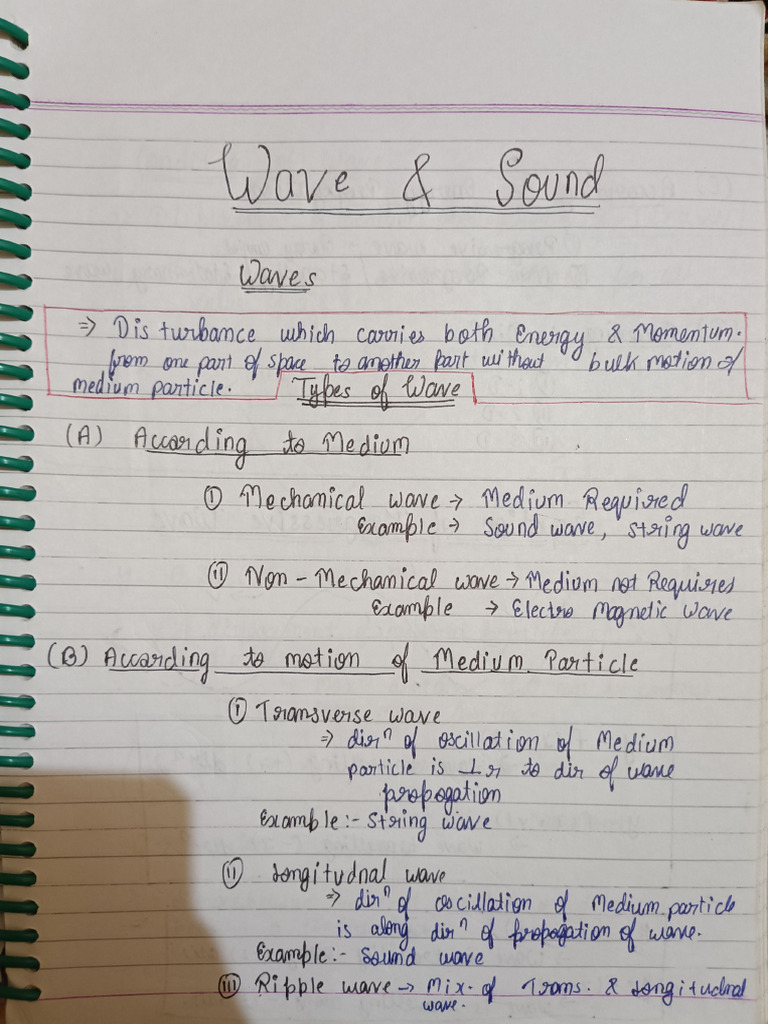 Wave & Sound
Waves
⇒ Disturbance which carries both Energy & Momentum.
from one part of space to another part without bulk motion of
medium particle.
Types of Wave
(A) According to Medium
(i) Mechanical wave → Medium Required
Example → Sound wave, String wave
(ii) Non - Mechanical wave → Medium not Requires
Example → Electro Magnetic Wave
(B) According to motion of Medium Particle
(i) Transverse wave
⇒ dirⁿ of oscillation of Medium
particle is ⊥r to dir of wave
propogation
Example :- String wave
(ii) Longitudnal wave
⇒ dirⁿ of oscillation of Medium particle
is along dirⁿ of propogation of wave.
Example :- Sound wave
(iii) Ripple wave → Mix. of Trans. & Longitudnal
wave.